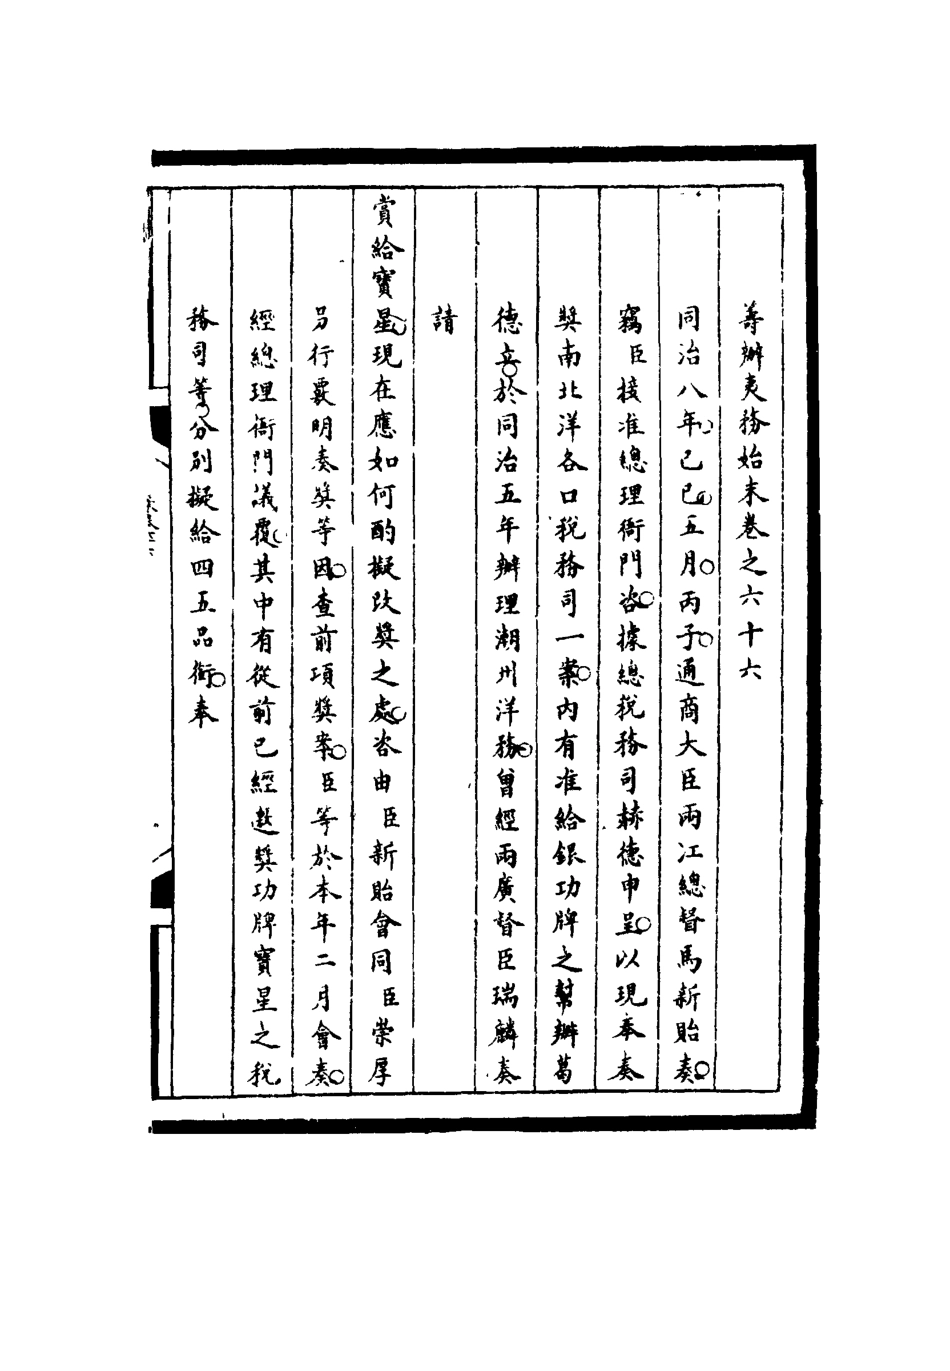 籌辦夷務始末卷之六十六
同治八年己巳五月丙子通商大臣兩江總督馬新貽奏
竊臣接准總理衙門咨據總稅務司赫德申呈以現奉奏
獎南北洋各口稅務司一案內有准給銀功牌之幫辦葛
德立於同治五年辦理潮州洋務曾經兩廣督臣瑞麟奏
請
賞給寶星現在應如何酌擬改獎之處咨由臣新貽會同臣崇厚
另行覈明奏獎等因查前項獎案臣等於本年二月會奏
經總理衙門議覆其中有從前已經遞獎功牌寶星之稅
務司等分別擬給四五品銜奉